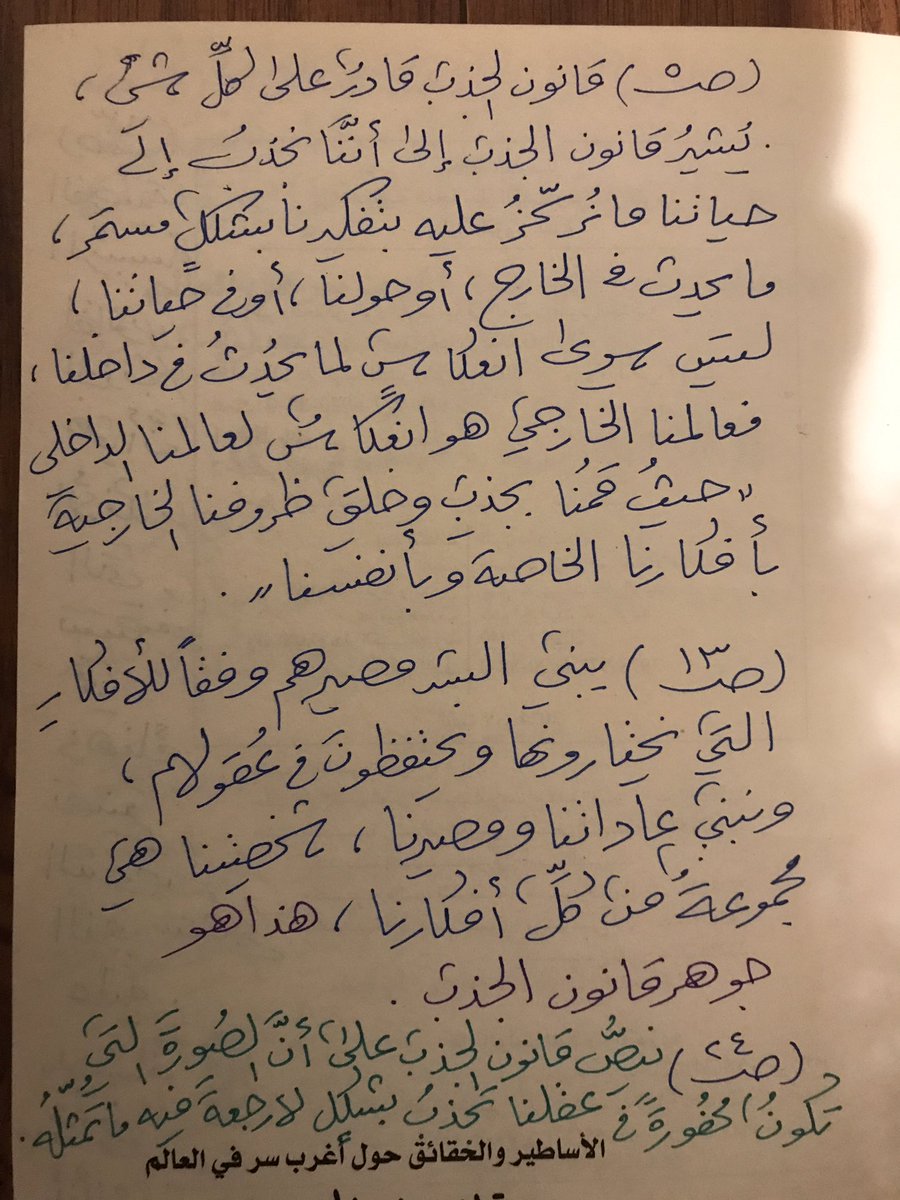 (ص٥) قانون الجذبِ قادرٌ على كلِّ شيءٍ ،
. يُشيرُ قانون الجذبِ إلىٰ أنَّنَا نجذبُ إلى
حياتنا ما نُركّزُ عليه بتفكيرنا بشكلٍ مستمرٍ ،
ما يحدث في الخارج ، أو حولنا ، أو في حياتنا ،
ليس سوى انعكاسٍ لما يحدُثُ في داخلنا ،
فعالمنا الخارجيِّ هو انعكاسٌ لعالمنا الداخلي
"حيثُ قمنُا بجذبِ وخلقِ ظروفنا الخارجيةَ
بأفكارنا الخاصة وبأنفسنا" .
(ص١٣) يبني البشر مصيرهم وفقاً للأفكارِ
التي يختارونها ويحتفظونَ في عُقولهم ،
ونبني عاداتنا ومصيرنا ، شخصيتنا هي
مجموعةُ من كلِّ أفكارنا ، هذا هو
جوهر قانون الجذبِ .
(ص٢٤) ينصُّ قانون الجذبِ علىٰ أنَّ الصُورةَ التي
تكونُ محفورةً في عقلنا تجذبُ بشكل لا رجعةَ فيه ما تمثّلهُ .
الأساطير والحقائق حول أغرب سر في العالم